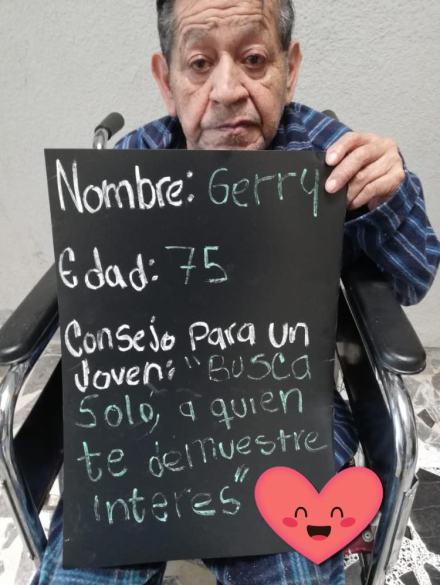 Nombre: Gerry
Edad: 75
Consejo para un
Joven: "Busca
Solo, a quien
te demuestre
interes"